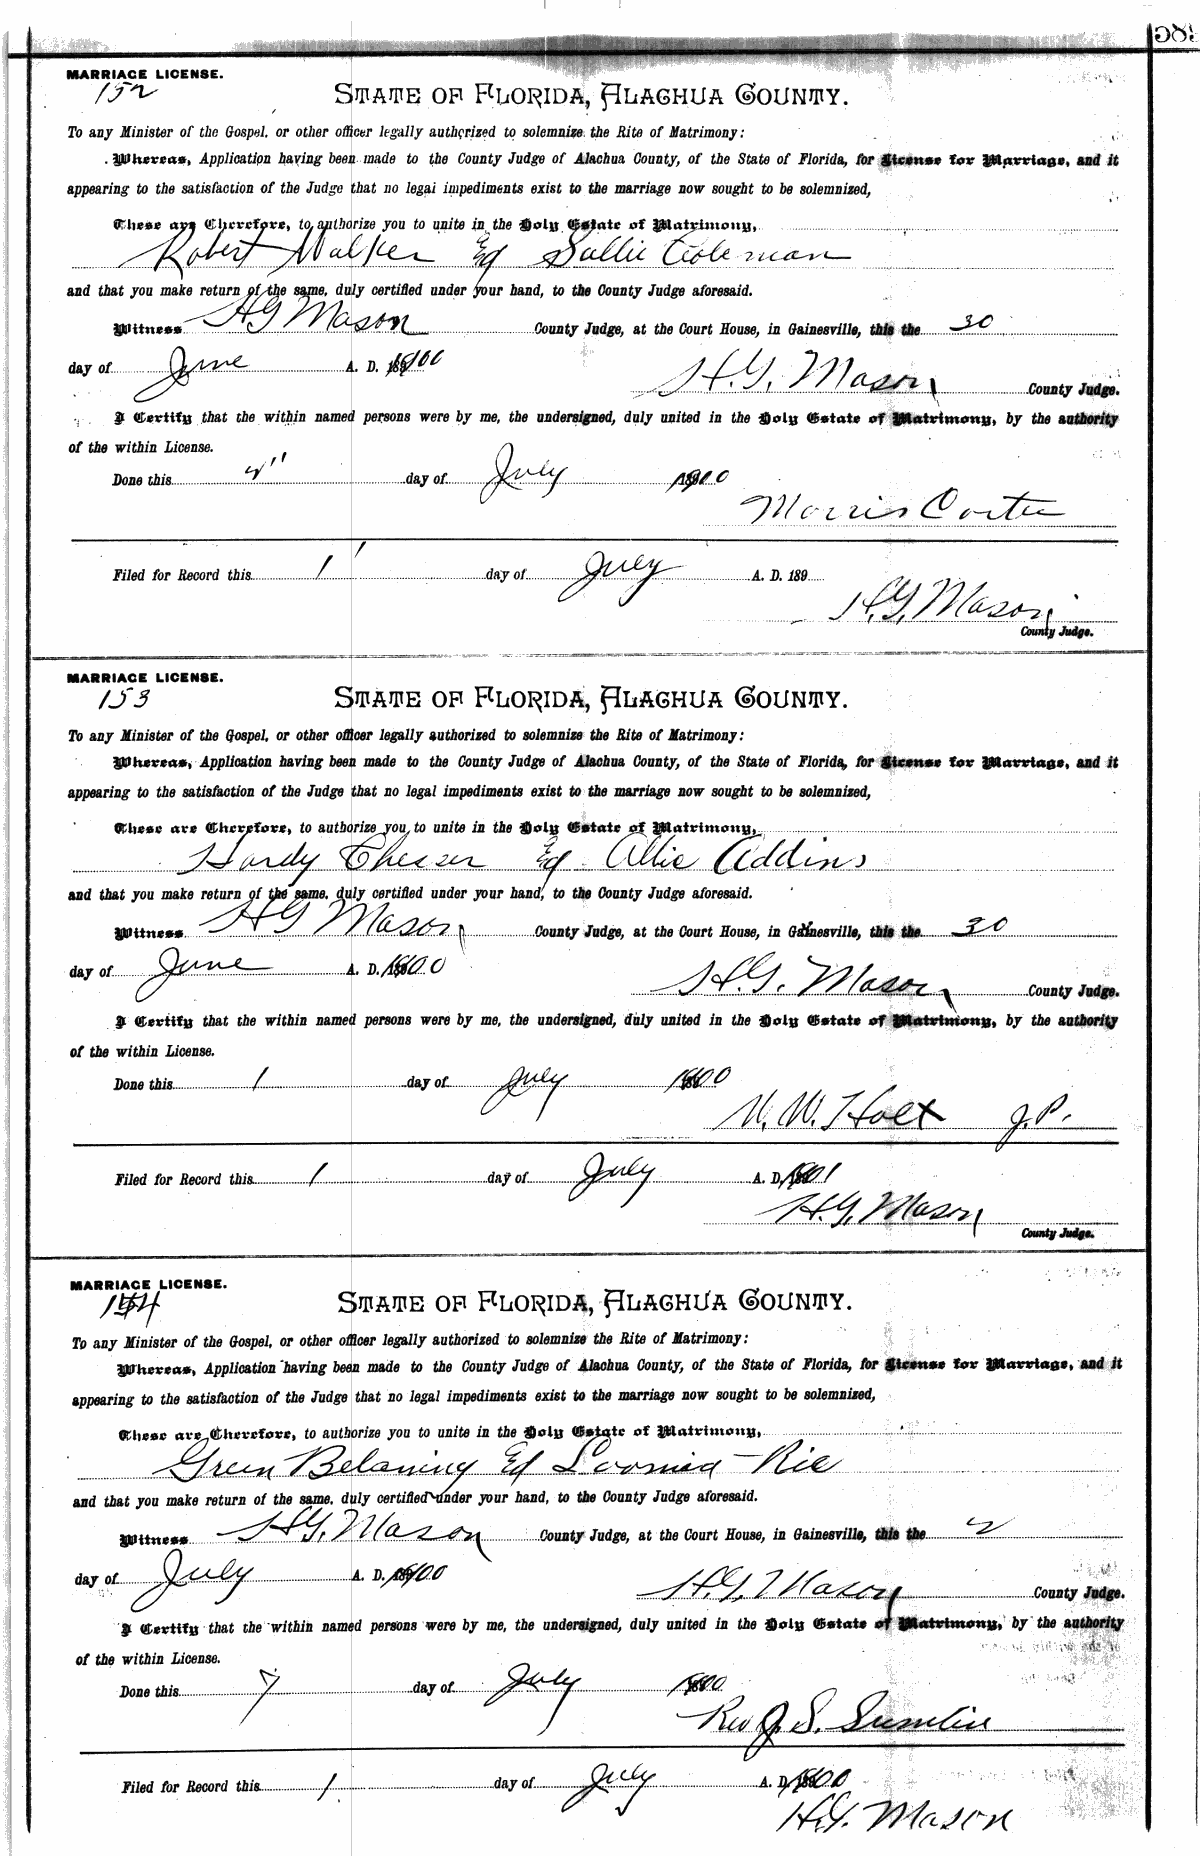 MARRIAGE LICENSE.
152
STATE OF FLORIDA, ALACHUA COUNTY.
To any Minister of the Gospel, or other officer legally authorized to solemnize the Rite of Matrimony:
Whereas, Application having been made to the County Judge of Alachua County, of the State of Florida, for License for Marriage, and it
appearing to the satisfaction of the Judge that no legal impediments exist to the marriage now sought to be solemnized,
These are Therefore, to authorize you to unite in the Holy Estate of Matrimony,
Robert Walker & Sallie Coleman
and that you make return of the same, duly certified under your hand, to the County Judge aforesaid.
Witness HG Mason County Judge, at the Court House, in Gainesville, this the 30
day of June A. D. 1900 H.G. Mason County Judge.
I Certify that the within named persons were by me, the undersigned, duly united in the Holy Estate of Matrimony, by the authority
of the within License.
Done this day of July 1900
Morris
Filed for Record this 1 day of July A. D. 189
H.G. Mason
County Judge.
MARRIAGE LICENSE.
153
STATE OF FLORIDA, ALACHUA COUNTY.
To any Minister of the Gospel, or other officer legally authorized to solemnize the Rite of Matrimony:
Whereas, Application having been made to the County Judge of Alachua County, of the State of Florida, for License for Marriage, and it
appearing to the satisfaction of the Judge that no legal impediments exist to the marriage now sought to be solemnized,
These are Therefore, to authorize you to unite in the Holy Estate of Matrimony,
Hardy Chesser & Allie Addins
and that you make return of the same, duly certified under your hand, to the County Judge aforesaid.
Witness HG Mason County Judge, at the Court House, in Gainesville, this the 30
day of June A. D. 1900 H.G. Mason County Judge.
I Certify that the within named persons were by me, the undersigned, duly united in the Holy Estate of Matrimony, by the authority
of the within License.
Done this 1 day of July 1900
W. W. Holt J.P.
Filed for Record this 1 day of July A. D. 1901
H.G. Mason
County Judge.
MARRIAGE LICENSE.
154
STATE OF FLORIDA, ALACHUA COUNTY.
To any Minister of the Gospel, or other officer legally authorized to solemnize the Rite of Matrimony:
Whereas, Application having been made to the County Judge of Alachua County, of the State of Florida, for License for Marriage, and it
appearing to the satisfaction of the Judge that no legal impediments exist to the marriage now sought to be solemnized,
These are Therefore, to authorize you to unite in the Holy Estate of Matrimony,
Green &
and that you make return of the same, duly certified under your hand, to the County Judge aforesaid.
Witness H.G. Mason County Judge, at the Court House, in Gainesville, this the 2
day of July A. D. 1900 H.G. Mason County Judge.
I Certify that the within named persons were by me, the undersigned, duly united in the Holy Estate of Matrimony, by the authority
of the within License.
Done this 7 day of July 1900
Rev J. S. Sumlin
Filed for Record this 1 day of July A. D. 1900
H.G. Mason